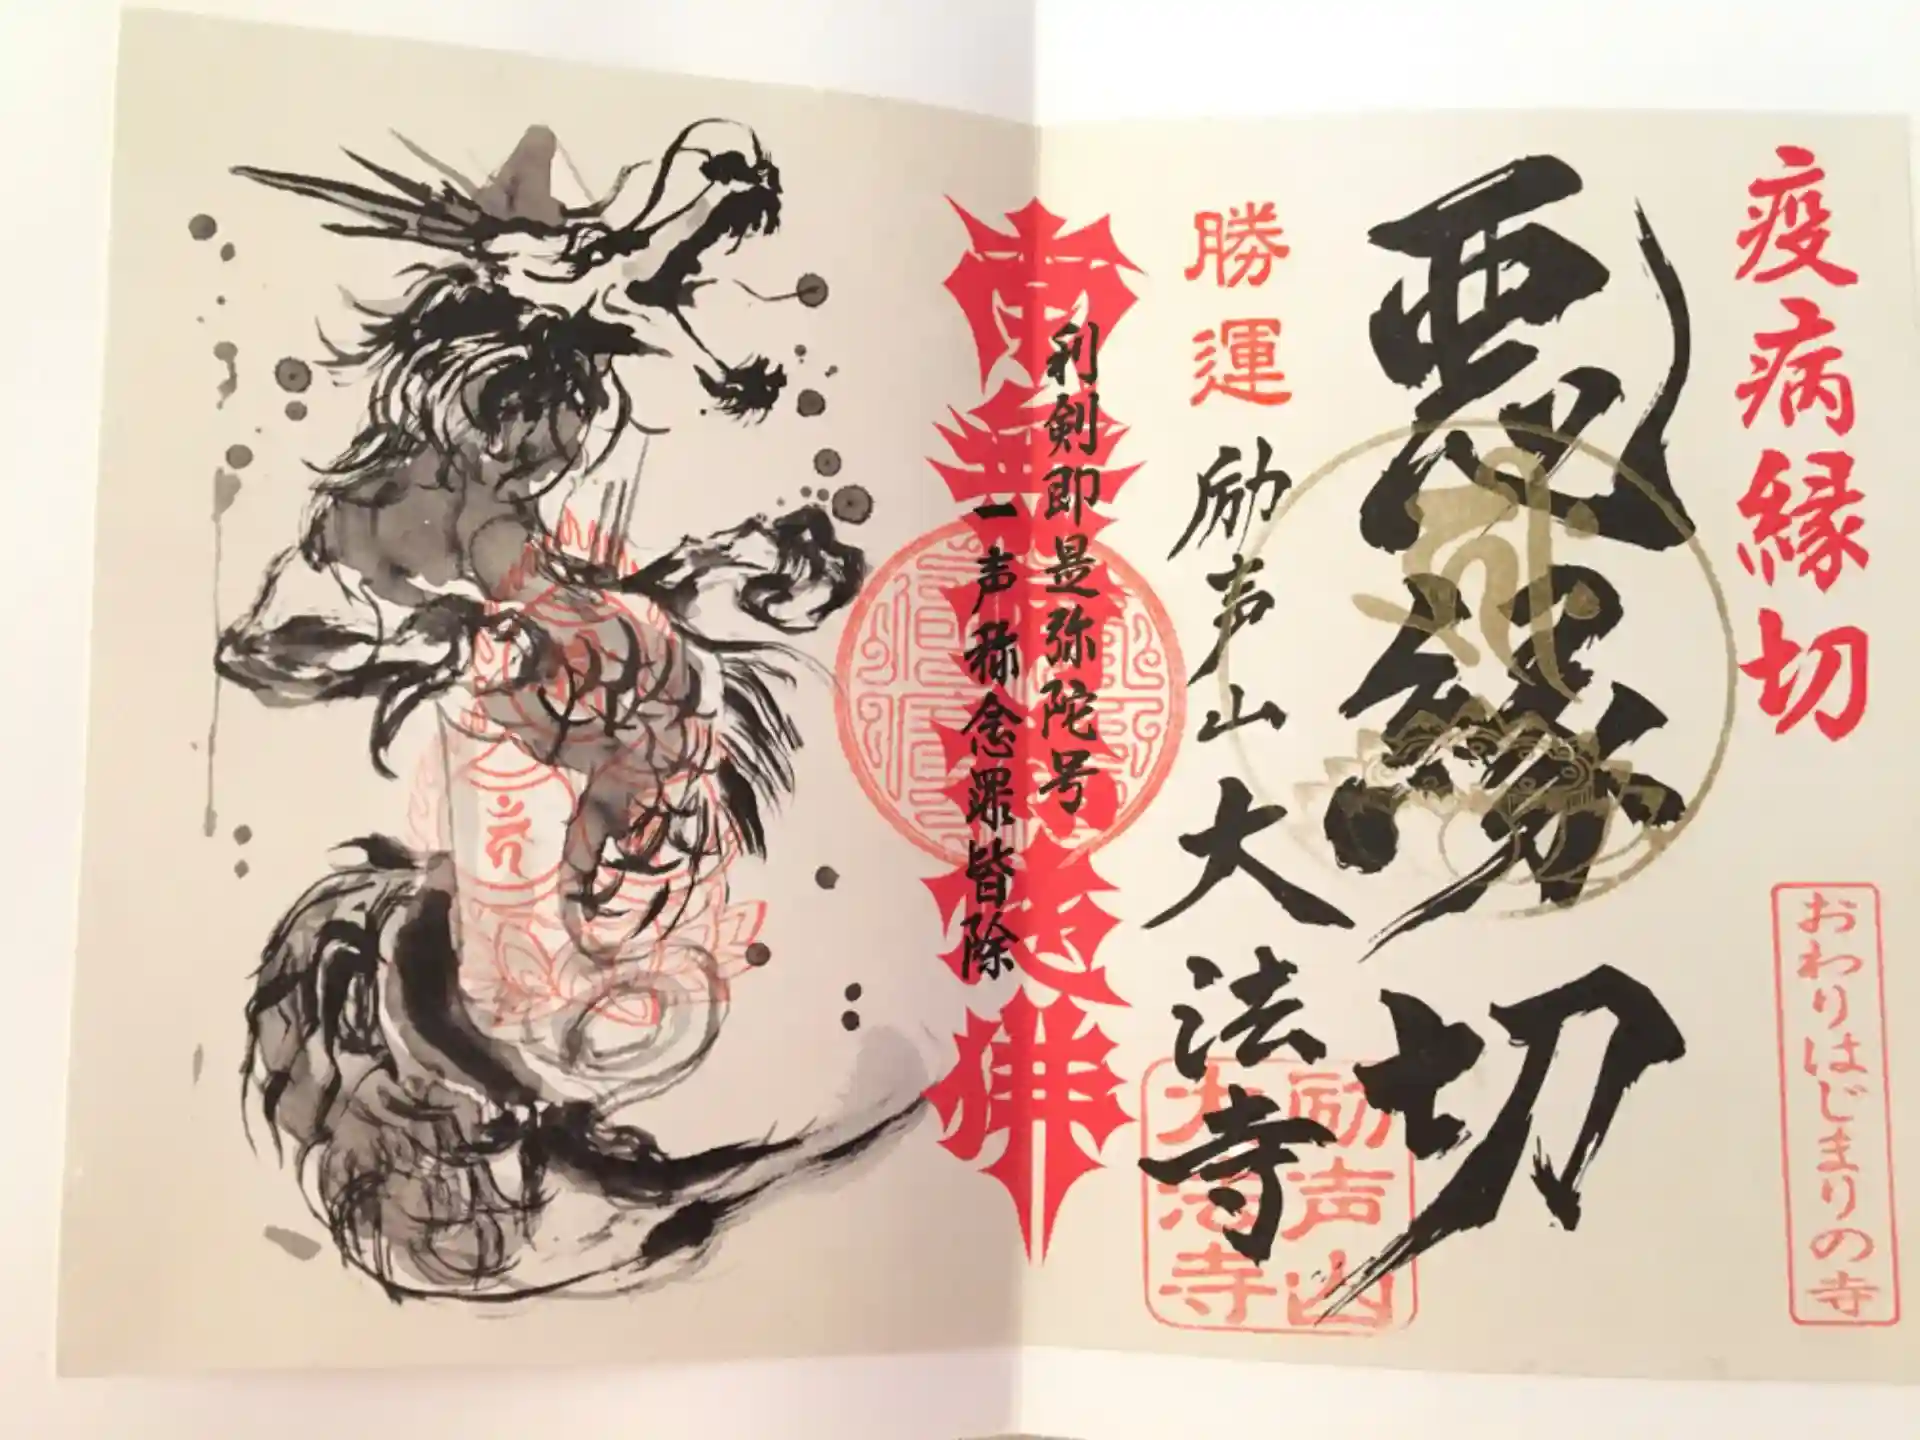 疫病縁切
おわりはじまりの寺
悪縁切
勝運
励声山大法寺
励声山
大法寺
南無阿弥陀佛
利剣即是弥陀号
一声称念罪皆除